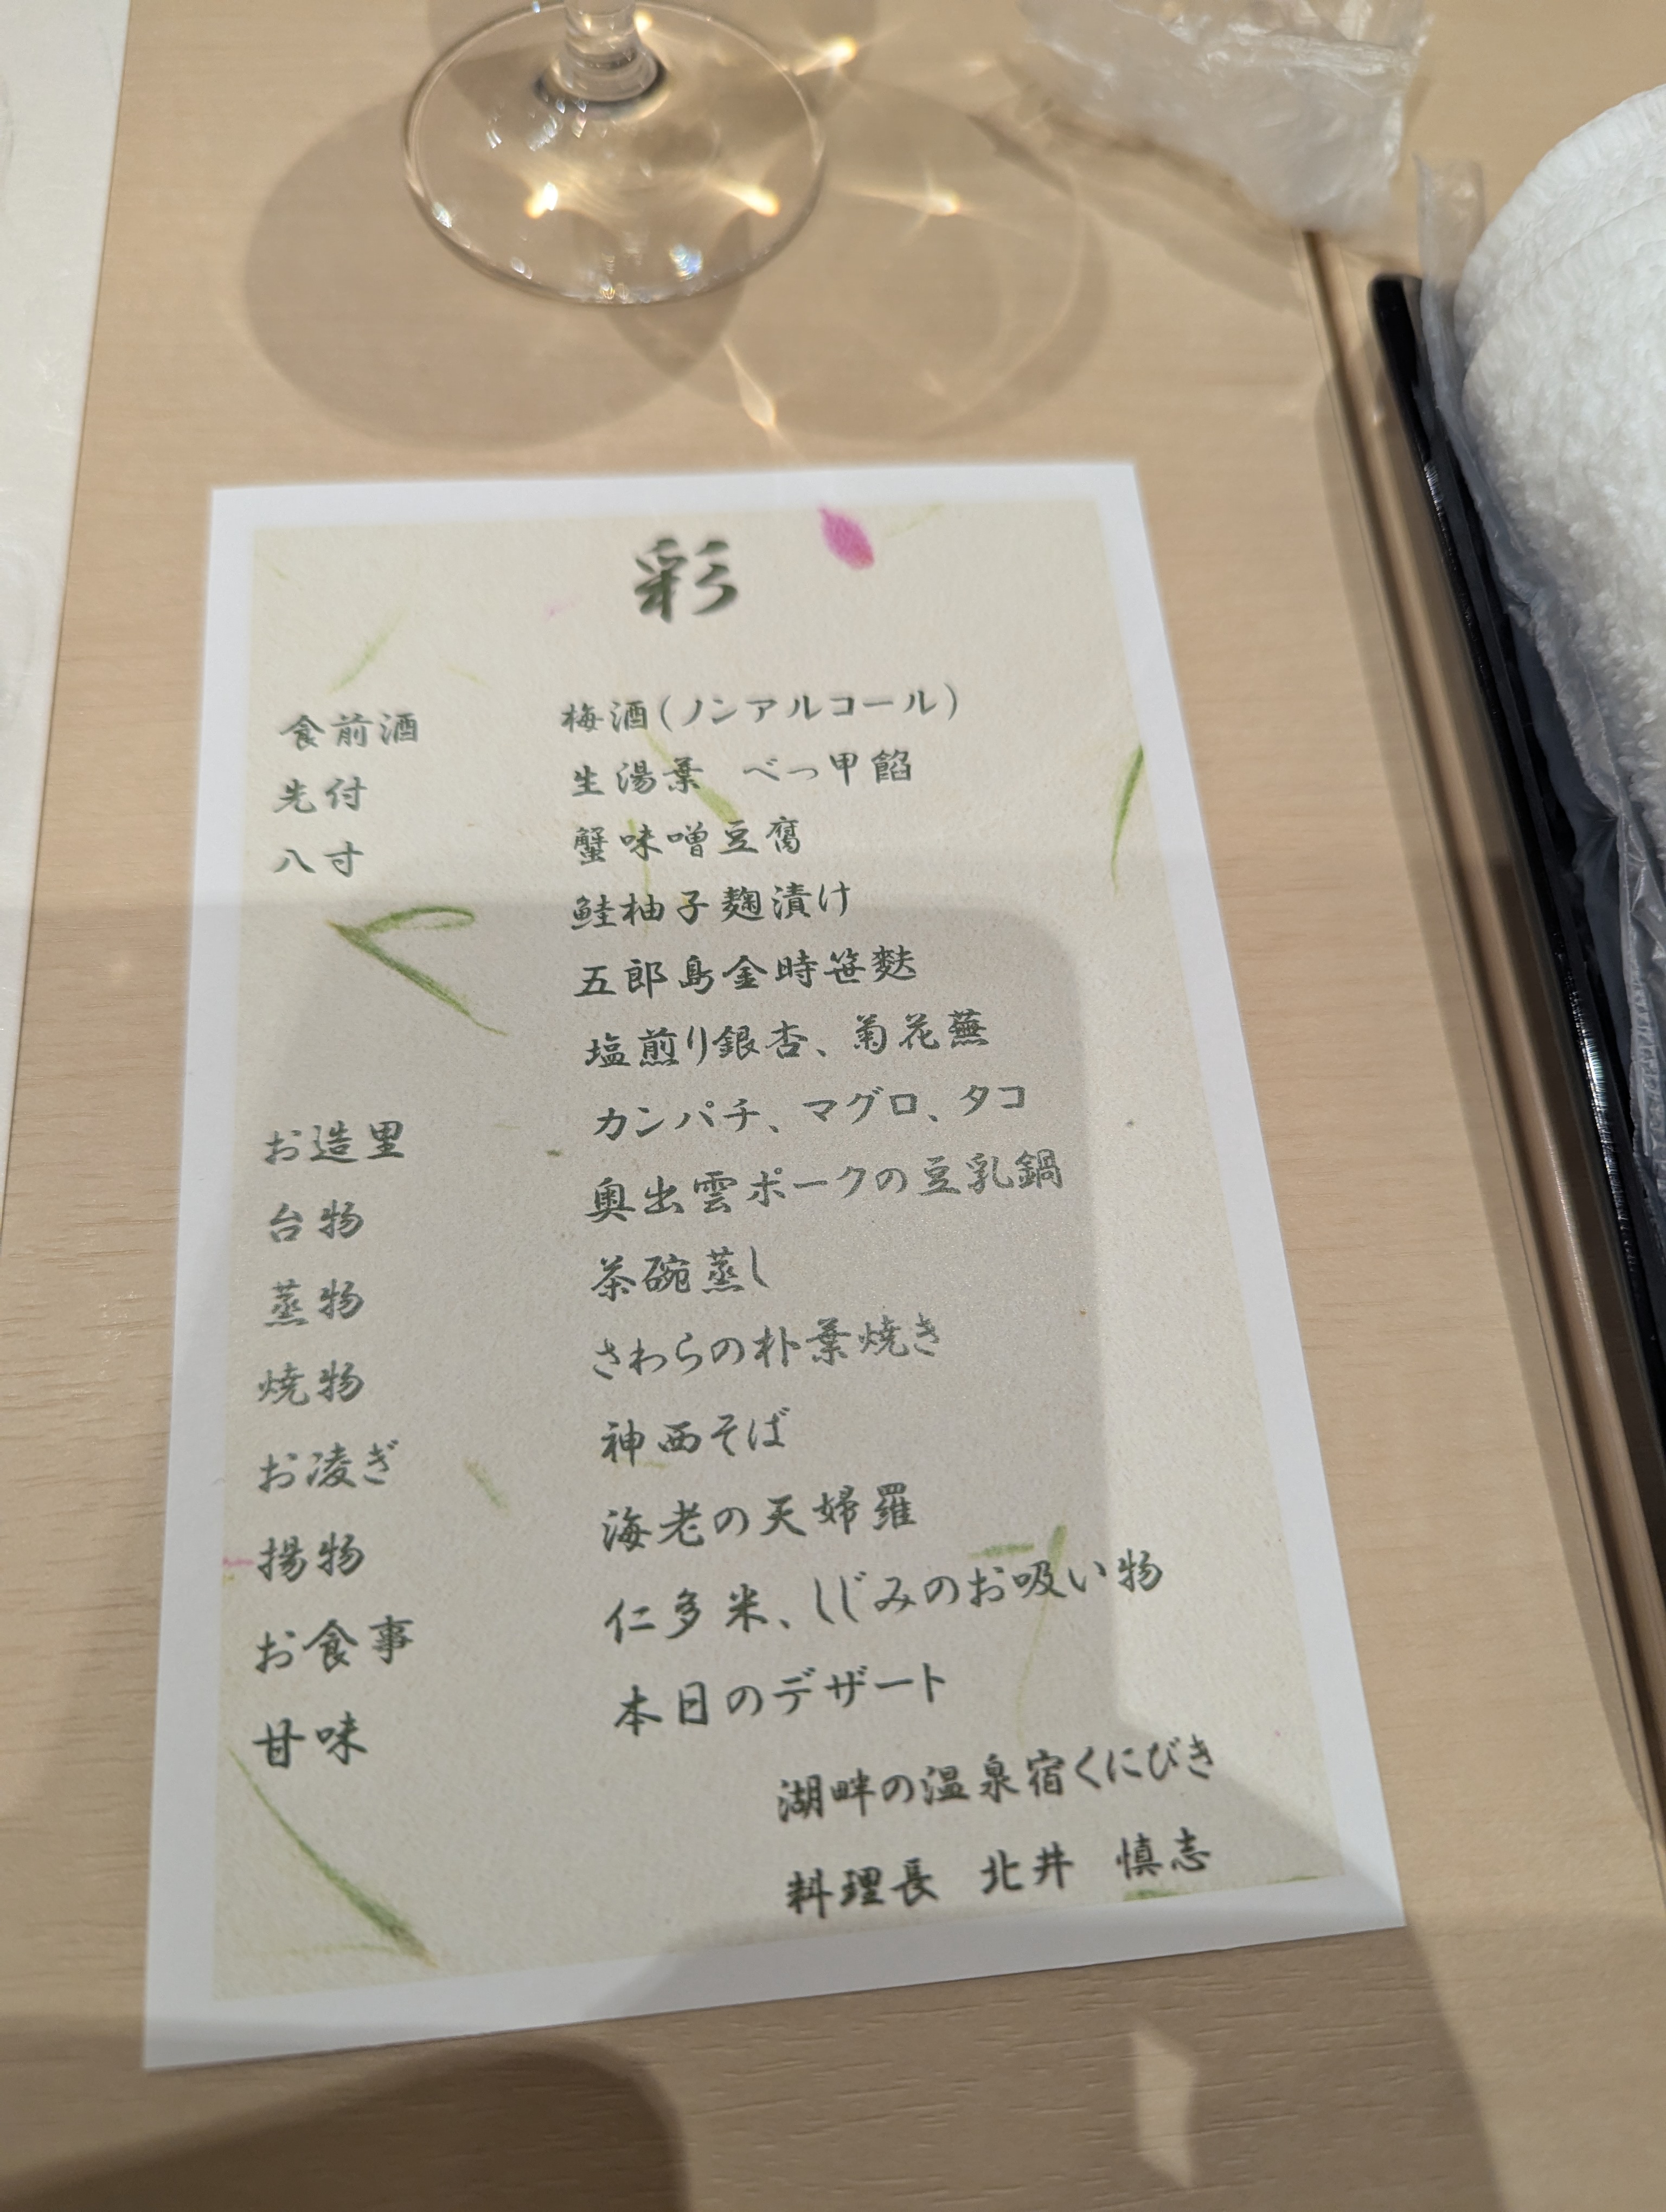 彩
食前酒 梅酒(ノンアルコール)
先付 生湯葉 べっ甲餡
八寸 蟹味噌豆腐
鮭柚子麹漬け
五郎島金時笹麩
塩煎り銀杏、菊花蕪
お造里 カンパチ、マグロ、タコ
台物 奥出雲ポークの豆乳鍋
蒸物 茶碗蒸し
焼物 さわらの朴葉焼き
お凌ぎ 神西そば
揚物 海老の天婦羅
お食事 仁多米、しじみのお吸い物
甘味 本日のデザート
湖畔の温泉宿くにびき
料理長 北井 慎志